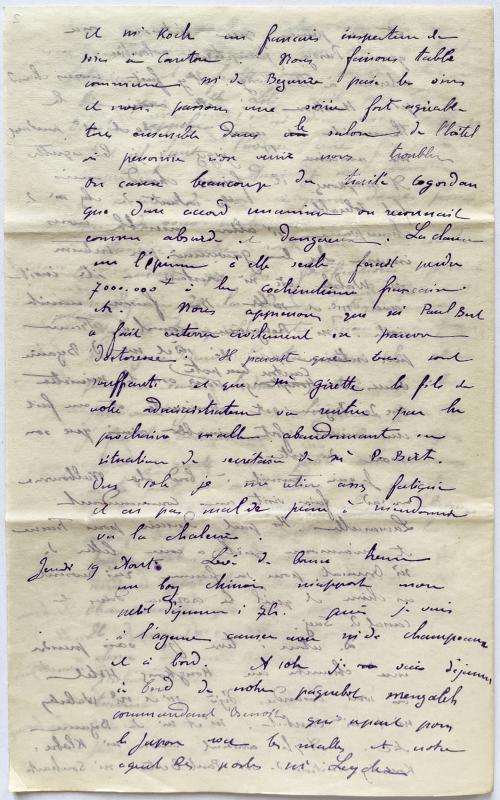 et Mr Koch un français inspecteur de
soies à Canton. Nous faisons table
commune Mr de Bezaure paie les vins
et nous passons une soirée fort agréable-
ment ensemble dans le salon de l'hôtel
si personne n'en venir nous troubler
On cause beaucoup du traité Cogordan
que d'un accord unanime on reconnait
comme absurde et dangereux. La clause
sur l'opium à elle seule ferait perdre
7.000.000 à la cochinchine française
Nous apprenons que Mr Paul Bert
a fait enterrer civilement en
Il parait que tous sont
souffrants et que Mr girette le fils de
notre administrateur va rentrer par la
prochaine malle abandonnant sa
situation de secrétaire de Mr P. Bert.
je me retire assez fatigué
et ai pas mal de peine à m'endormir
vu la chaleur.
Jeudi 19 Août. Levé de bonne heure
un boy chinois m'apport mon
petit déjeuner à 7h. puis je vais
à l'agence causer avec Mr de Champeaux
et à bord. A 10h je vais déjeuner
à bord de notre paquebot menzaleh
commandant Benoit qui repart pour
le Japon avec les malles et notre
agent des postes Mr